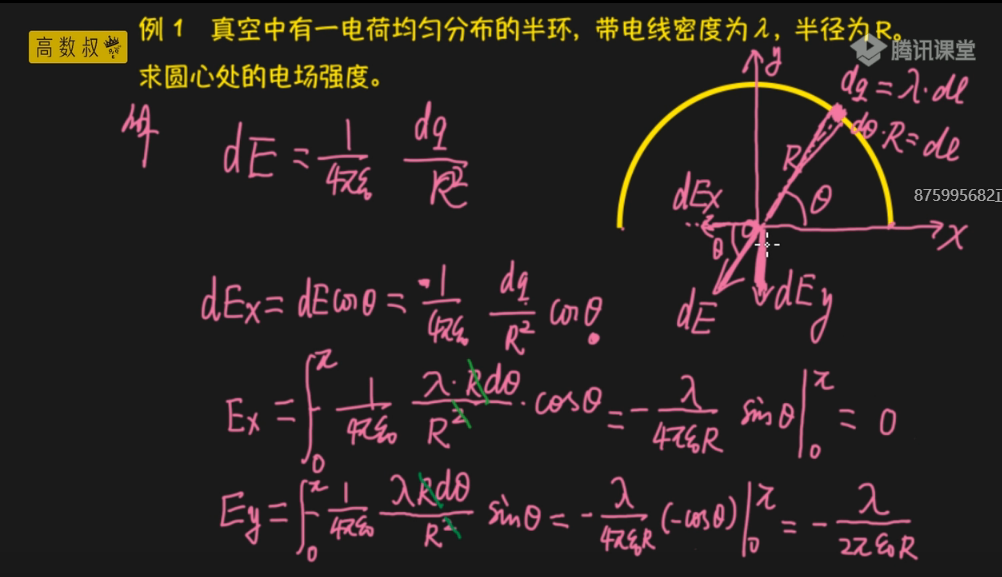 高数叔
例 1 真空中有一电荷均匀分布的半环，带电线密度为 λ，半径为 R。
求圆心处的电场强度。
腾讯课堂
解
dE = 1/4πε₀ dq/R²
y
dq = λ·dl
dθ·R = dl
R
θ
875995682正
dEx
x
θ
dE
dEy
dEx = dEcosθ = -1/4πε₀ dq/R² cosθ
Ex = ∫₀^π -1/4πε₀ λ·Rdθ/R² ·cosθ = - λ/4πε₀R sinθ |₀^π = 0
Ey = ∫₀^π -1/4πε₀ λRdθ/R² sinθ = - λ/4πε₀R (-cosθ) |₀^π = - λ/2πε₀R